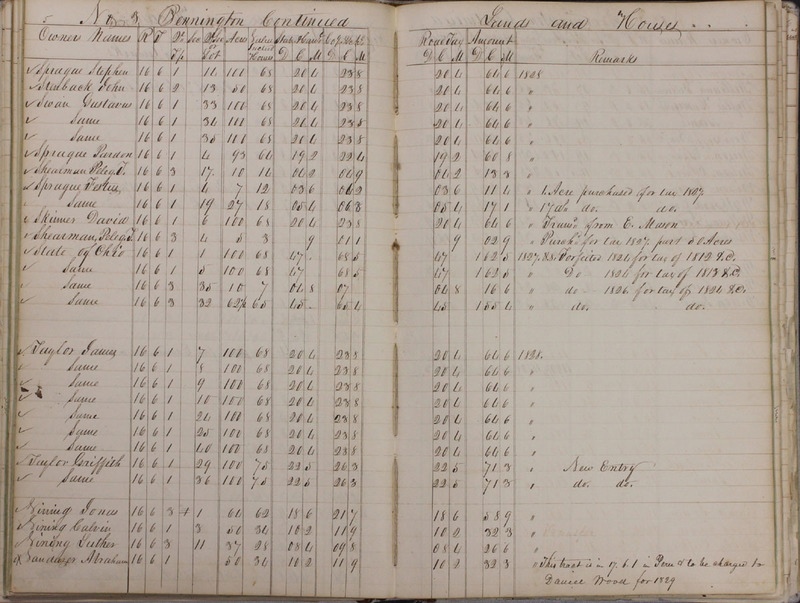 No 3 Bennington Continued Lands and Houses
Owner Names R T Sec Lot Acres State & Canal Co. & School Road Tax Amount
D C M D C M D C M D C M Remarks
Sprague Stephen 16 6 1 14 100 68 20 4 23 8 20 4 64 6 1828
John 16 6 2 13 50 68 20 4 23 8 20 4 64 6 "
Swan Gustavus 16 6 1 33 100 68 20 4 23 8 20 4 64 6 "
Same 16 6 1 34 100 68 20 4 23 8 20 4 64 6 "
Same 16 6 1 35 100 68 20 4 23 8 20 4 64 6 "
Sprague Pardon 16 6 1 4 93 64 19 2 22 4 19 2 60 8 "
Shearman Peleg T. 16 6 3 17 10 14 04 2 04 9 04 2 13 3 "
Sprague 16 6 1 4 7 12 03 6 04 2 03 6 11 4 " 1 Acre purchased for tax 1827
Same 16 6 1 19 27 18 05 4 06 3 05 4 17 1 " 17 do. do. do.
Skinner David 16 6 1 6 100 68 20 4 23 8 20 4 64 6 " Trans'd from E. Mason
Shearman, Peleg T. 16 6 3 4 5 3 9 01 1 9 02 9 " Purch'd for tax 1827 part 50 Acres
State of Ohio 16 6 1 1 100 68 47 68 5 47 1 62 5 1827.&8. Forfeited 1824 for tax of 1812 &.C.
Same 16 6 1 5 100 68 47 68 5 47 1 62 5 " Do 1824 for tax of 1813 &.C.
Same 16 6 3 35 10 7 04 8 07 04 8 16 6 " do 1826 for tax of 1824 &.C.
Same 16 6 3 32 62½ 65 45 65 4 45 1 55 4 " do. do.
Taylor James 16 6 1 7 100 68 20 4 23 8 20 4 64 6 1828.
Same 16 6 1 8 100 68 20 4 23 8 20 4 64 6 "
Same 16 6 1 9 100 68 20 4 23 8 20 4 64 6 "
Same 16 6 1 10 100 68 20 4 23 8 20 4 64 6 "
Same 16 6 1 24 100 68 20 4 23 8 20 4 64 6 "
Same 16 6 1 25 100 68 20 4 23 8 20 4 64 6 "
Same 16 6 1 40 100 68 20 4 23 8 20 4 64 6 "
Taylor Griffith 16 6 1 29 100 75 22 5 26 3 22 5 71 3 " New Entry
Same 16 6 1 36 100 75 22 5 26 3 22 5 71 3 " do. do.
Vining Jonas 16 6 3 1 64 62 18 6 21 7 18 6 58 9 "
Vining Calvin 16 6 1 3 50 34 10 2 11 9 10 2 32 3 "
Vining Luther 16 6 3 11 37 28 08 4 09 8 08 4 26 6 "
Abraham 16 6 1 50 34 10 2 11 9 10 2 32 3 " This tract is in 17. 6. 1 in to be charged to
Wood for 1829